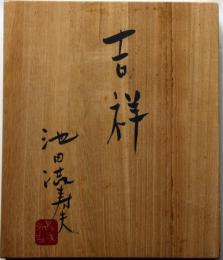 吉祥
池田満寿夫